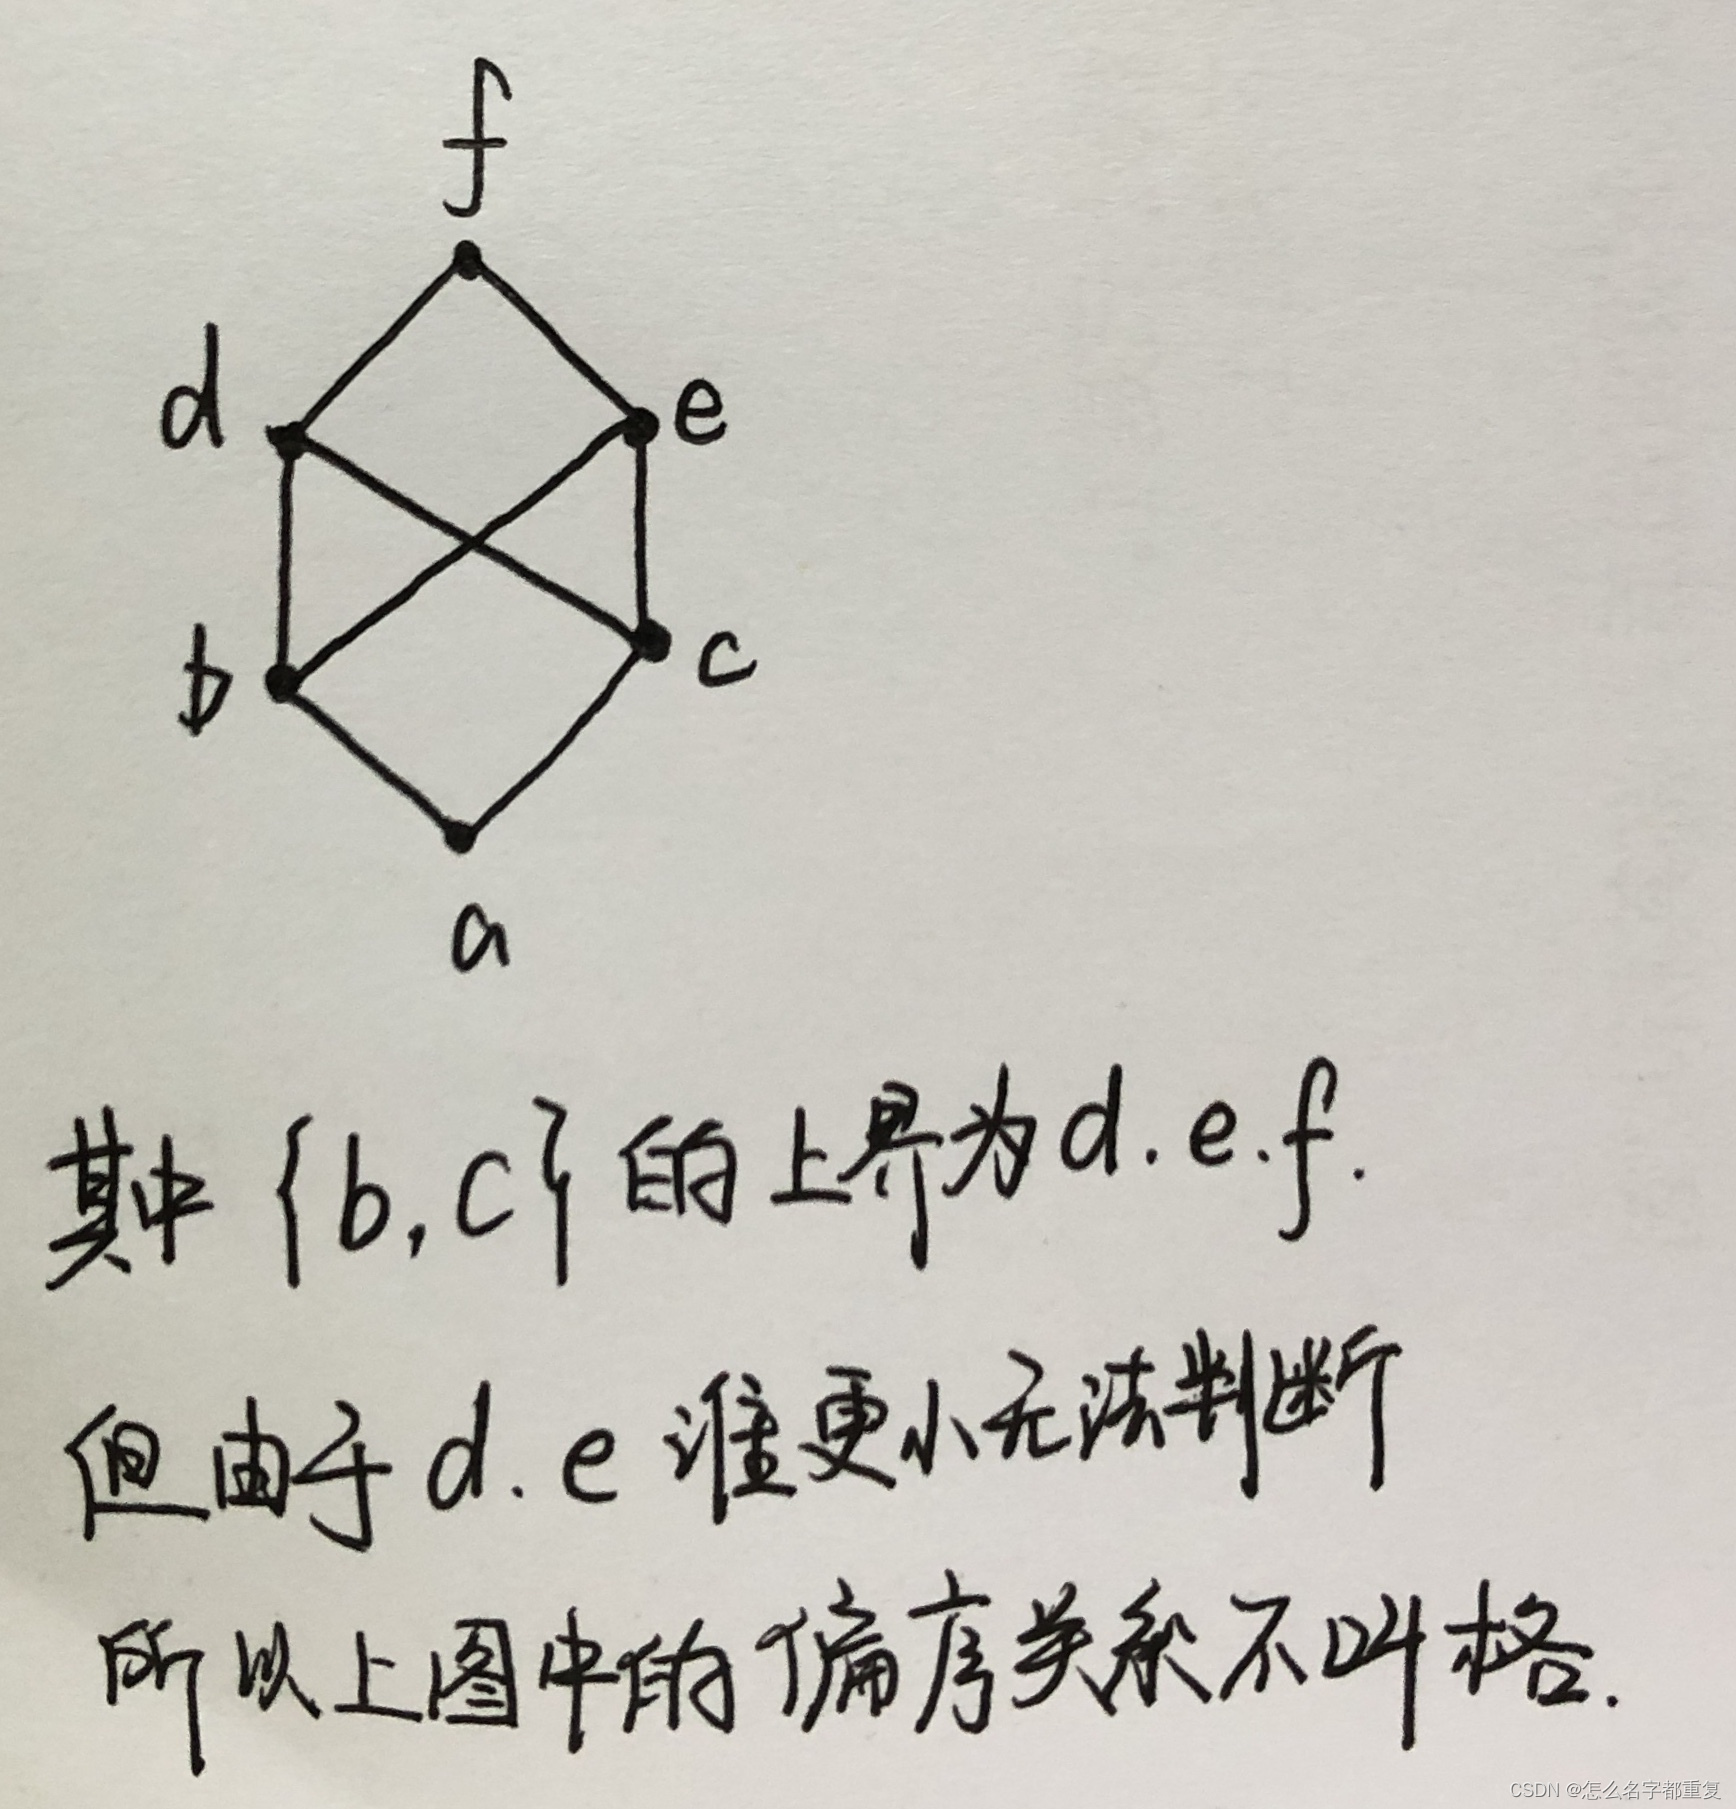 f
d
e
b
c
a
其中{b,c}的上界为d.e.f.
但由于d.e谁更小无法判断
所以上图中的偏序关系不叫格.
CSDN @怎么名字都重复